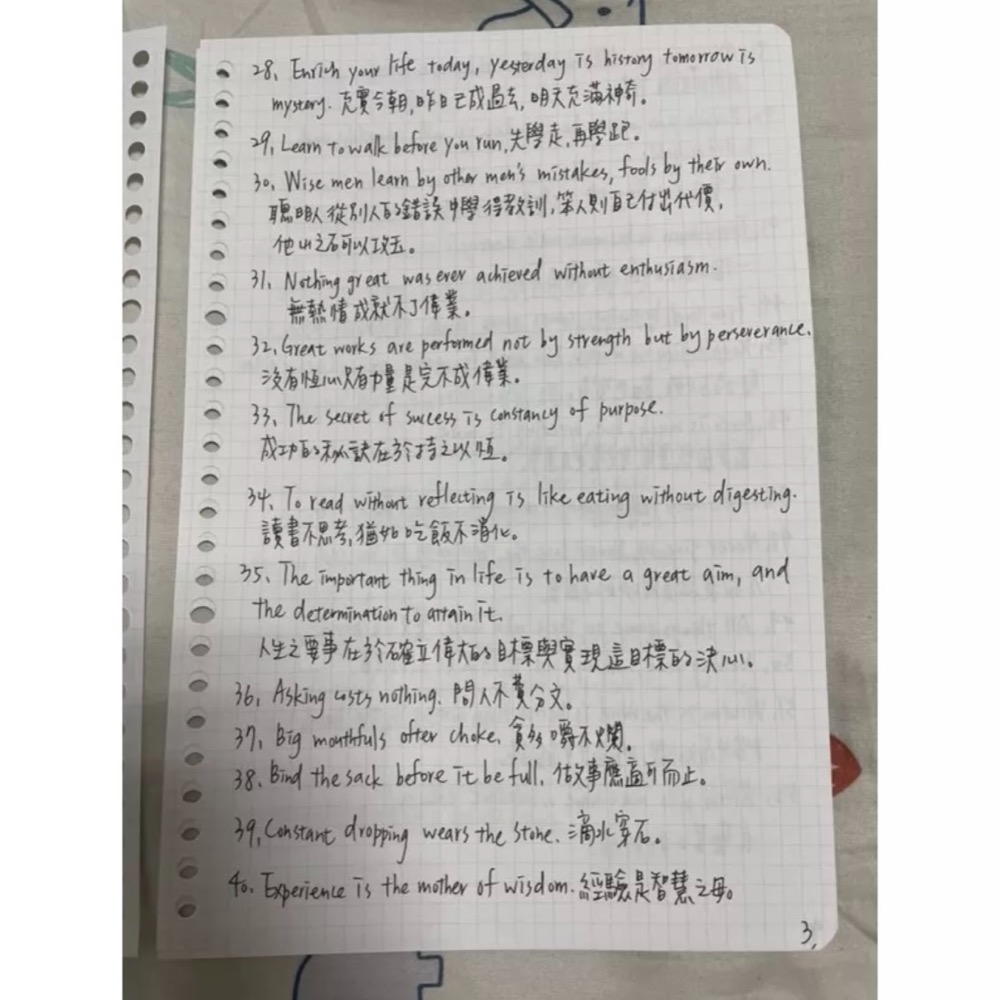 28. Enrich your life today, yesterday is history tomorrow is
mystery. 充實今朝,昨日已成過去,明天充滿神奇。
29. Learn to walk before you run. 先學走,再學跑。
30. Wise men learn by other men's mistakes, fools by their own.
聰明人從別人的錯誤中學得教訓,笨人則自己付出代價,
他山之石可以攻玉。
31. Nothing great was ever achieved without enthusiasm.
無熱情成就不了偉業。
32. Great works are performed not by strength but by perseverance.
沒有恆心只有力量是完不成偉業。
33. The secret of success is constancy of purpose.
成功的秘訣在於持之以恆。
34. To read without reflecting is like eating without digesting.
讀書不思考,猶如吃飯不消化。
35. The important thing in life is to have a great aim, and
the determination to attain it.
人生之要事在於確立偉大的目標與實現這目標的決心。
36. Asking costs nothing. 問人不費分文。
37. Big mouthfuls ofter choke. 貪多嚼不爛。
38. Bind the sack before it be full. 做事應適可而止。
39. Constant dropping wears the stone. 滴水穿石。
40. Experience is the mother of wisdom. 經驗是智慧之母。
3.